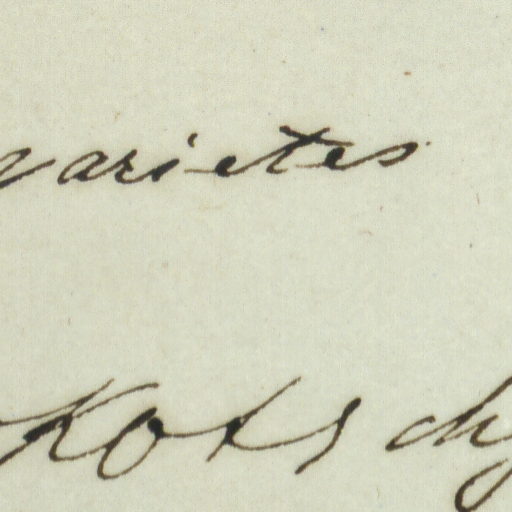 varietes
Kotschy